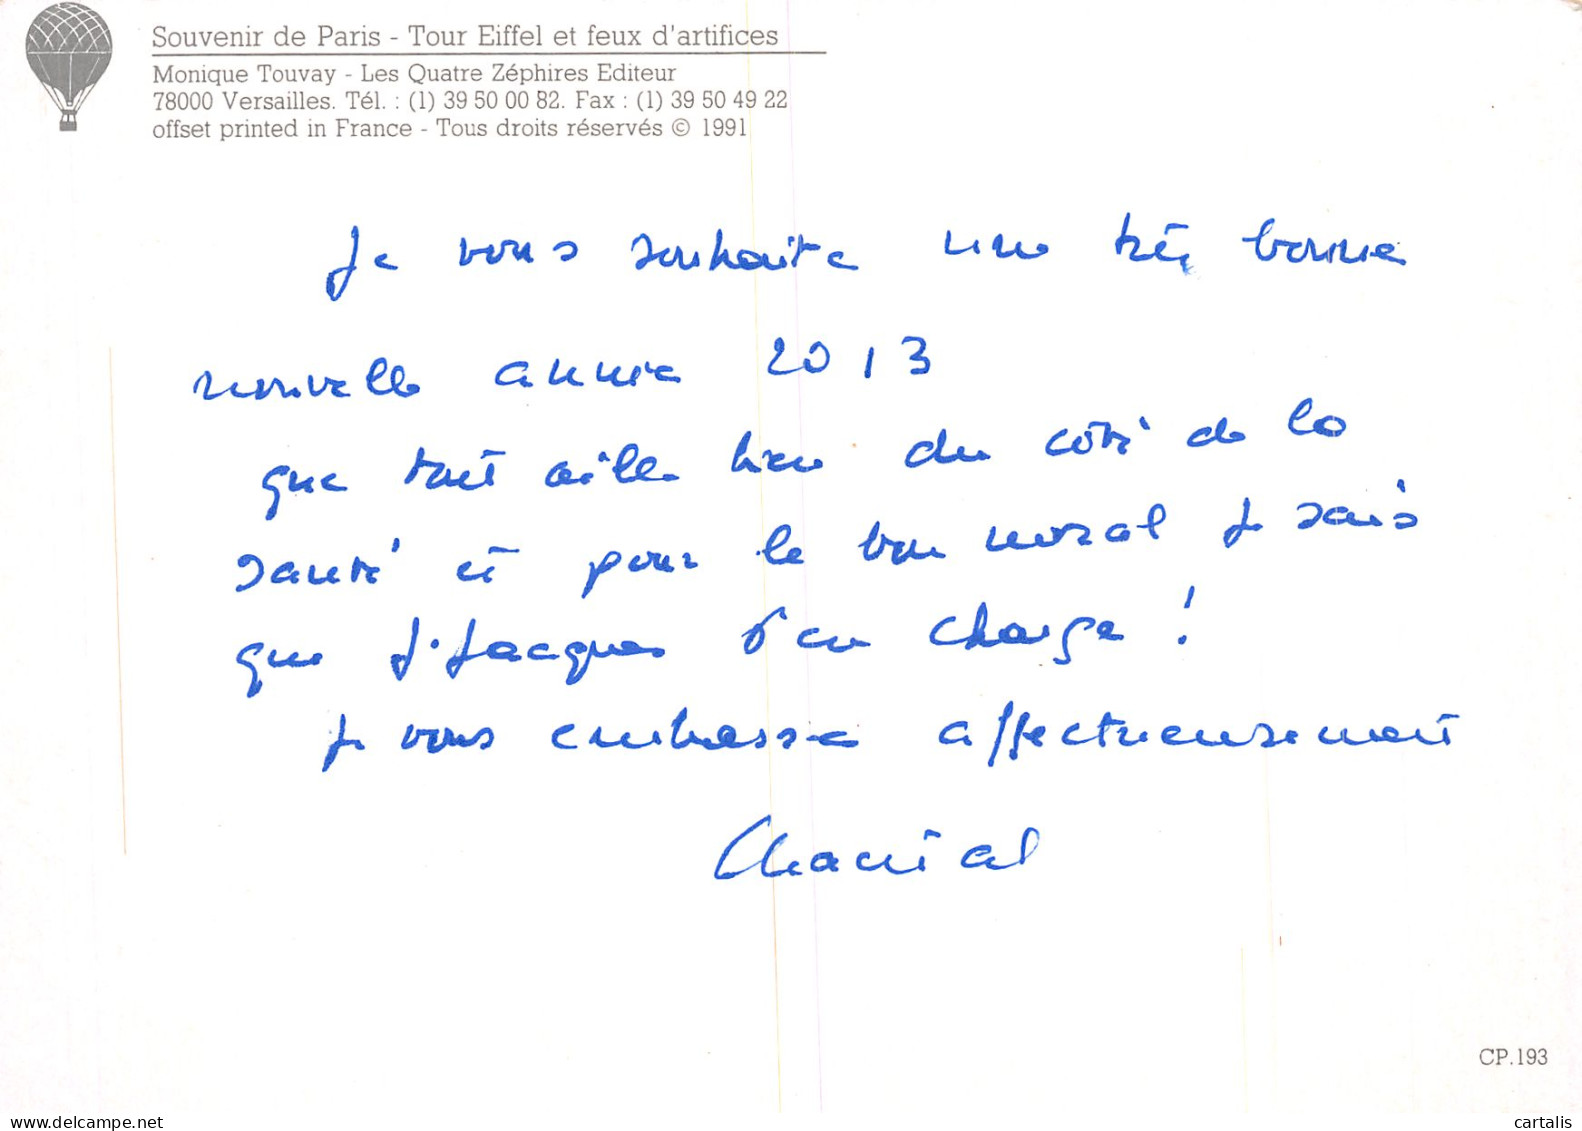 Souvenir de Paris - Tour Eiffel et feux d'artifices
Monique Touvay - Les Quatre Zéphires Editeur
78000 Versailles. Tél. : (1) 39 50 00 82. Fax : (1) 39 50 49 22
offset printed in France - Tous droits réservés © 1991
Je vous souhaite une très bonne
nouvelle année 2013
que tout aille bien du côté de la
santé et pour le bon moral je sais
que J. Jacques s'en charge !
Je vous embrasse affectueusement
Chantal
CP.193
www.delcampe.net
cartalis